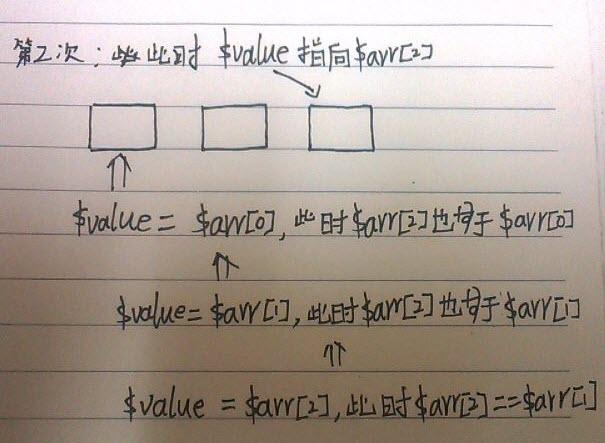 第2次：此时 $value 指向$arr[2]
$value = $arr[0], 此时$arr[2]也等于$arr[0]
$value = $arr[1], 此时$arr[2]也等于$arr[1]
$value = $arr[2], 此时$arr[2]==$arr[1]